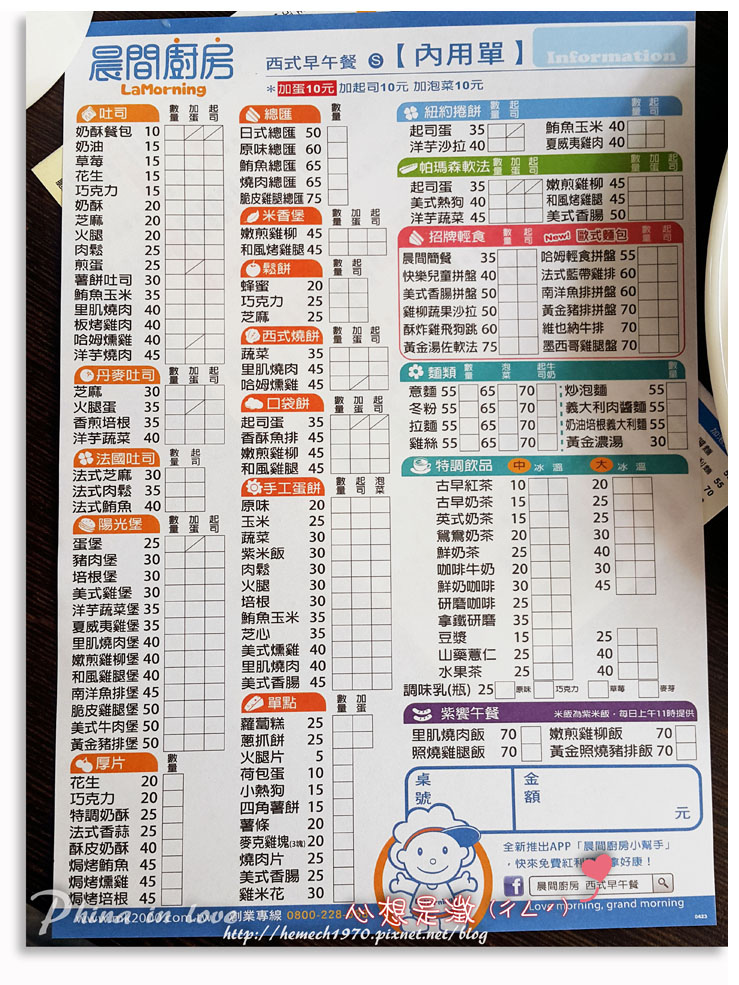 晨間廚房
LaMorning
西式早午餐 S 【內用單】
Information
*加蛋10元 加起司10元 加泡菜10元
吐司 數量 加蛋 起司
奶酥餐包 10
奶油 15
草莓 15
花生 15
巧克力 15
奶酥 20
芝麻 20
火腿 20
肉鬆 25
煎蛋 25
薯餅吐司 30
鮪魚玉米 35
里肌燒肉 40
板烤雞肉 40
哈姆燻雞 40
洋芋燒肉 45
丹麥吐司 數量 加蛋 起司
芝麻 30
火腿蛋 35
香煎培根 35
洋芋蔬菜 40
法國吐司 數量 起司
法式芝麻 30
法式肉鬆 35
法式鮪魚 40
陽光堡 數量 加蛋 起司
蛋堡 25
豬肉堡 30
培根堡 30
美式雞堡 30
洋芋蔬菜堡 35
夏威夷雞堡 35
里肌燒肉堡 40
嫩煎雞柳堡 40
和風雞腿堡 40
南洋魚排堡 45
脆皮雞腿堡 50
美式牛肉堡 50
黃金豬排堡 50
厚片 數量
花生 20
巧克力 20
特調奶酥 25
法式香蒜 25
酥皮奶酥 40
焗烤鮪魚 45
焗烤燻雞 45
焗烤培根 45
總匯 數量
日式總匯 50
原味總匯 60
鮪魚總匯 65
燒肉總匯 65
脆皮雞腿總匯 75
米香堡 數量 加蛋 起司
嫩煎雞柳 45
和風烤雞腿 45
鬆餅 數量 起司
蜂蜜 20
巧克力 25
芝麻 25
西式燒餅 數量 加蛋 起司
蔬菜 35
里肌燒肉 45
哈姆燻雞 45
口袋餅 數量 加蛋 起司
起司蛋 35
香酥魚排 45
嫩煎雞柳 45
和風雞腿 45
手工蛋餅 數量 起司 泡菜
原味 20
玉米 25
蔬菜 30
紫米飯 30
肉鬆 30
火腿 30
培根 30
鮪魚玉米 35
芝心 35
美式燻雞 40
里肌燒肉 40
美式香腸 45
單點 數量 加蛋
蘿蔔糕 25
蔥抓餅 25
火腿片 5
荷包蛋 10
小熱狗 15
四角薯餅 15
薯條 20
麥克雞塊(3塊) 20
燒肉片 25
美式香腸 25
雞米花 30
紐約捲餅 數量 起司
起司蛋 35 鮪魚玉米 40
洋芋沙拉 40 夏威夷雞肉 40
帕瑪森軟法 數量 加蛋 起司
起司蛋 35 嫩煎雞柳 45
美式熱狗 40 和風烤雞腿 45
洋芋蔬菜 45 美式香腸 50
招牌輕食 數量 起司 New! 歐式麵包 數量 起司
晨間簡餐 35 哈姆輕食拼盤 55
快樂兒童拼盤 40 法式藍帶雞排 60
美式香腸拼盤 50 南洋魚排拼盤 60
雞柳蔬果沙拉 50 黃金豬排拼盤 70
酥炸雞飛狗跳 60 維也納牛排 70
黃金湯佐軟法 75 墨西哥雞腿盤 70
麵類 數量 泡菜 起牛司奶 數量
意麵 55 65 70 炒泡麵 55
冬粉 55 65 70 義大利肉醬麵 55
拉麵 55 65 70 奶油培根義大利麵 55
雞絲 55 65 70 黃金濃湯 30
特調飲品 中 冰 溫 大 冰 溫
古早紅茶 10 20
古早奶茶 15 25
英式奶茶 15 25
鴛鴦奶茶 20 30
鮮奶茶 25 40
咖啡牛奶 20 30
鮮奶咖啡 30 45
研磨咖啡 25
拿鐵研磨 35
豆漿 15 25
山藥薏仁 25 40
水果茶 25 40
調味乳(瓶) 25 原味 巧克力 草莓 麥芽
紫饗午餐 米飯為紫米飯，每日上午11時提供
里肌燒肉飯 70 嫩煎雞柳飯 70
照燒雞腿飯 70 黃金照燒豬排飯 70
桌號 金額 元
全新推出APP「晨間廚房小幫手」
，快來免費紅利 拿好康！
晨間廚房 西式早午餐
Love morning, grand morning
0423
創業專線 0800-228
Phina in Love
心想是澂 (ㄔㄥˊ)
http://hemech1970.pixnet.net/blog